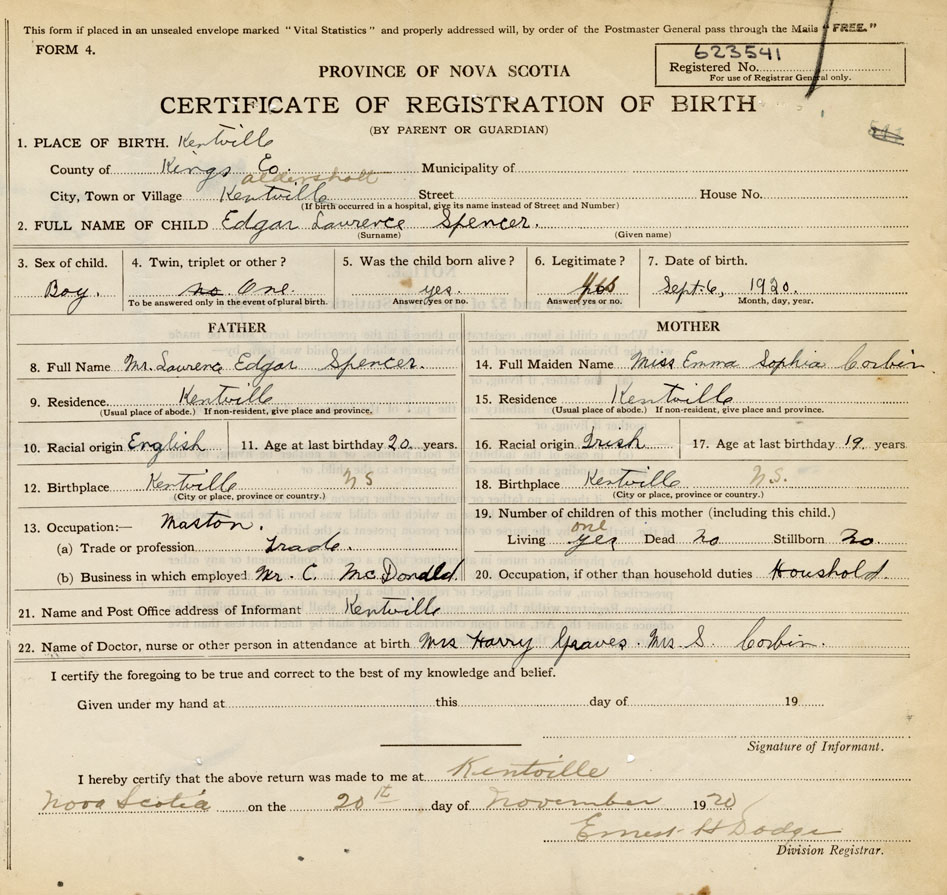 This form if placed in an unsealed envelope marked "Vital Statistics" and properly addressed will, by order of the Postmaster General pass through the Mails "FREE."
FORM 4.
623541
Registered No.
For use of Registrar General only.
PROVINCE OF NOVA SCOTIA
CERTIFICATE OF REGISTRATION OF BIRTH
(BY PARENT OR GUARDIAN)
1. PLACE OF BIRTH. Kentville
County of Kings Co. Municipality of
aldershott
City, Town or Village Kentville Street House No.
(If birth occurred in a hospital, give its name instead of Street and Number)
2. FULL NAME OF CHILD Edgar Lawrence Spencer.
(Surname) (Given name)
3. Sex of child. 4. Twin, triplet or other? 5. Was the child born alive? 6. Legitimate? 7. Date of birth.
Boy. no One. yes. yes Sept. 6, 1920.
To be answered only in the event of plural birth. Answer yes or no. Answer yes or no. Month, day, year.
FATHER MOTHER
8. Full Name Mr. Lawrenc Edgar Spencer. 14. Full Maiden Name Miss Emma Sophia Corbin.
9. Residence. Kentville 15. Residence Kentville
(Usual place of abode.) If non-resident, give place and province. (Usual place of abode.) If non-resident, give place and province.
10. Racial origin English 11. Age at last birthday 20. years. 16. Racial origin Irish 17. Age at last birthday 19 years
12. Birthplace Kentville NS 18. Birthplace Kentville NS.
(City or place, province or country.) (City or place, province or country.)
13. Occupation:— Maston. 19. Number of children of this mother (including this child.)
one
(a) Trade or profession Trade. Living yes Dead No Stillborn No
(b) Business in which employed Mr. C. McDonald. 20. Occupation, if other than household duties Houshold.
21. Name and Post Office address of Informant Kentville
22. Name of Doctor, nurse or other person in attendance at birth Mrs Harry Graves. Mrs. S. Corbin.
I certify the foregoing to be true and correct to the best of my knowledge and belief.
Given under my hand at this day of 19
Signature of Informant.
I hereby certify that the above return was made to me at Kentville
Nova Scotia on the 20th day of November 1920
Ernest H Dodge
Division Registrar.